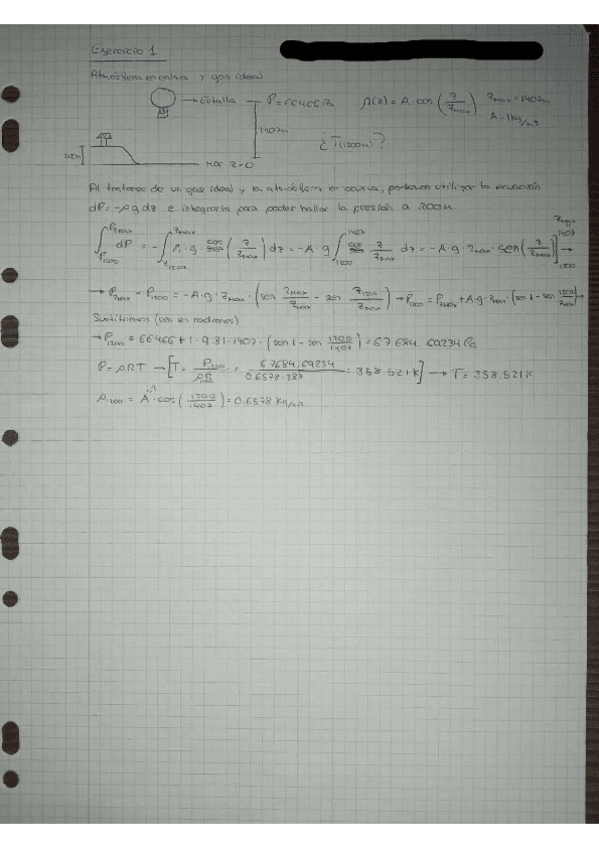 Ejercicio 1
Atmósfera en calma y gas ideal
→ Estalla P=66466 Pa ρ(z) = A · cos (z/z_max) z_max = 1407m
A = 1 kg/m3
1407m
¿T(1200m)?
MAR z=0
Al tratarse de un gas ideal y la atmósfera en calma, podemos utilizar la ecuación
dP = -ρ g dz e integrarla para poder hallar la presión a 1200m.
∫_{P_1200}^{P_zmax} dP = -∫_{z_1200}^{z_max} A · g · cos (z/z_max) dz = -A · g ∫_{1200}^{1407} cos z/z_max dz = -A · g · z_max · sen (z/z_max)]_{1200}^{1407} →
→ P_zmax - P_1200 = -A · g · z_max · (sen z_max/z_max - sen z_1200/z_max) → P_1200 = P_zmax + A · g · z_max · (sen 1 - sen 1200/z_max) →
Sustituimos (sen en radianes)
→ P_1200 = 66466 + 1 · 9.81 · 1407 · (sen 1 - sen 1200/1407) = 67684.69234 Pa
P = ρRT → [T = P_1200/ρR = 67684.69234/0.6578·287 = 358.521 K] → T = 358.521 K
ρ_1200 = A · cos (1200/1407) = 0.6578 kg/m3